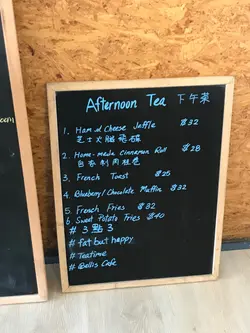 Afternoon Tea 下午茶
1. Ham & Cheese Jaffle $32
芝士火腿
2. Home-made Cinnamon Roll $28
自家制肉桂卷
3. French Toast $25
4. Blueberry/Chocolate Muffin $32
5. French Fries $32
6. Sweet Potato Fries $40
#3點3
#fat but happy
#Teatime
#Bellis Cafe